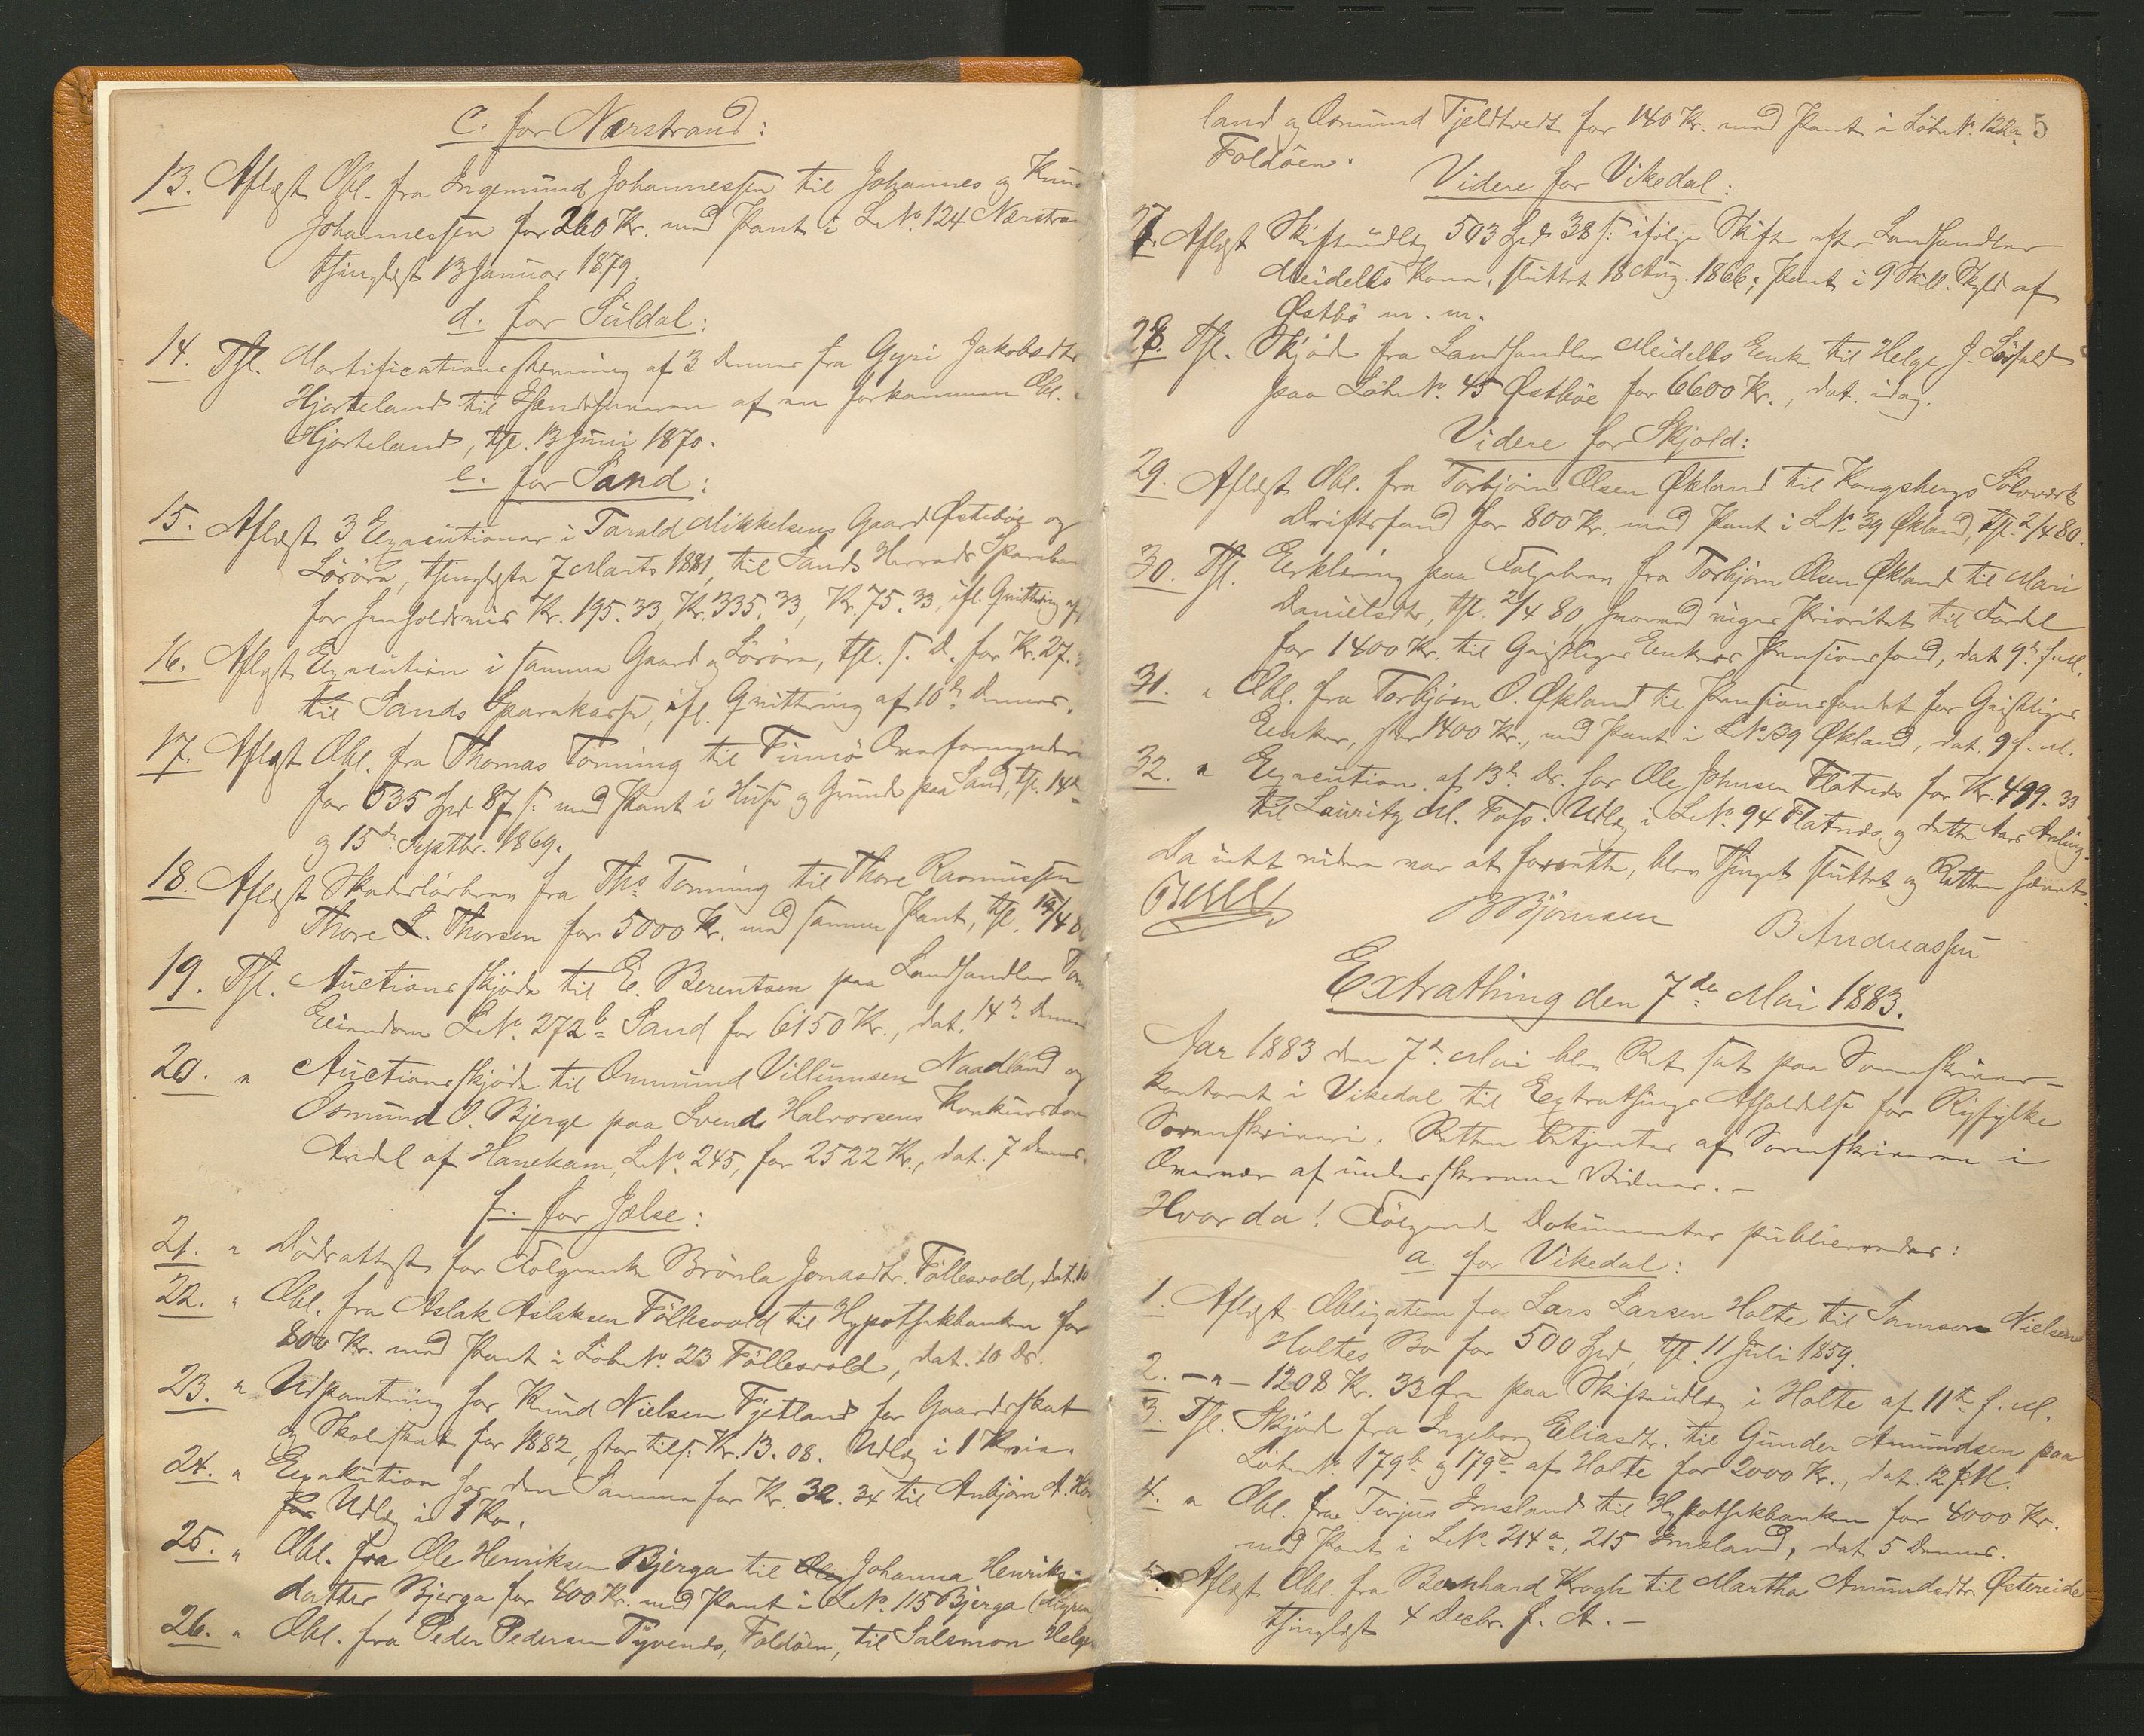 c. for Nærstrand:
13. Aflæst Obl. fra Ingemund Johannessen til Johannes og Knud
Johannessen for 260 Kr. med Pant i L.No. 124 Nærstrand
thinglæst 13 Januar 1879.
d. for Suldal:
14. Thl. Mortifications stevning af 3 dennes fra Gyri Jakobsdtr
Hjorteland til Ihændehaveren af en forkommen Obl. i
Hjorteland, thl. 13 Juni 1870.
e. for Sand:
15. Aflæst 3 Executioner i Tarald Mikkelsens Gaard Østebøe og
Løsøre, thinglæste 7 Marts 1881, til Sands Herreds Sparebank
for henholdsvis Kr. 195.33, Kr. 335.33, Kr. 75.33, ifl. Qvittring af
16. Aflæst Execution i samme Gaard og Løsøre, thl. s. D. for Kr. 27.
til Sands Sparekasse, ifl. Qvittring af 10de dennes.
17. Aflæst Obl. fra Thomas Tønning til Finnø Overformynderi
for 535 Spd 87 s. med Pant i Huse og Grunde paa Sand, thl. 14de
og 15de Septbr. 1869.
18. Aflæst Skadesløsbrev fra Ths. Tønning til Thore Rasmussen
Thore L. Thorsen for 5000 Kr. med samme Pant, thl. 14/4 8
19. Thl. Auctionsskjøde til E. Berentsen paa Landhandler Tøn
Eiendom L.No. 272b Sand for 6150 Kr., dat. 14de dennes
20. " Auctionsskjøde til Ommund Villumsen Naadland og
Osmund O. Bjerge paa Svend Halvorsens Konkursbos
Andel af Hanekam, L.No. 245, for 2522 Kr., dat. 7 dennes.
f. for Jelse:
21. " Dødsattest for Folgeenke Brønla Jonasdtr. Föllesvold, dat. 10
22. " Obl. fra Aslak Aslaksen Föllesvold til Hypothekbanken for
800 Kr. med Pant i Löbe No. 23 Föllesvold, dat. 10 ds.
23. " Udpantning hos Knud Nielsen Fjetland for Gaardsskat
og Skoleskat for 1882, stor tils. Kr. 13.08. Udlæg i 1 Kvie.
24. " Exekution hos den Samme for Kr. 32.34 til Anbjørn A.
for Udlæg i 1 Ko.
25. " Obl. fra Ole Henriksen Bjerga til Johanna Henriks-
datter Bjerga for 400 Kr. med Pant i L.No. 115 Bjerga (Myren)
26. " Obl. fra Peder Pedersen Tyvends, Foldöen, til Salamon Helge
land og Osmund Tjeldtvedt for 140 Kr. med Pant i Löbe N. 122a 5
Foldöen.
Videre for Vikedal:
27. Aflæst Skifteudlæg 503 Spd 38 s. ifølge Skifte efter Landhandler
Meidells Kone, sluttet 18 Aug. 1866; Pant i 9 Skill. Skyld af
Østbö m. m.
28. Thl. Skjöde fra Landhandler Meidells Enke til Helge J.
paa Löbe No. 45 Østböe for 6600 Kr., dat. idag.
Videre for Skjold:
29. Aflæst Obl. fra Torbjørn Olsen Økland til Kongsbergs Sølvværks
Driftsfond for 800 Kr. med Pant i L.No. 39 Økland, thl. 2/4 80.
30. Thl. Erklæring paa Folgebrev fra Torbjørn Olsen Økland til Mari
Danielsdtr, thl. 2/4 80, hvorved viges Prioritet til Fordel
for 1400 Kr. til Geistliges Enkers Pensionsfond, dat 9de f. M.
31. " Obl. fra Torbjörn O. Økland til Pensionsfondet for Geistliges
Enker, stor 1400 Kr., med Pant i L.No. 39 Økland, dat. 9 f. M.
32. " Execution af 13de ds. hos Ole Johnsen Flatnes for Kr. 499.33
til Lauritz M. Foss. Udlæg i L.No. 94 Flatnes og dette Aars Avling.
Da intet videre var at foretage, blev Thinget sluttet og Retten hævet.
B Björnsen B Andreassen
Extrathing den 7de Mai 1883.
Aar 1883 den 7de Mai blev Ret sat paa Sorenskriver-
kontoret i Vikedal til Extrathings Afholdelse for Ryfylke
Sorenskriveri. Retten betjentes af Sorenskriveren i
Overvær af underskrevne Vidner. -
Hvorda! Følgende Dokumenter publiceredes:
a. for Vikedal:
1. Aflæst Obligation fra Lars Larsen Holte til Samson Nielsen
Holtes Bo for 500 Spd, thl. 11 Juli 1859.
2. - " - 1208 Kr. 33 Øre paa Skifteudlæg i Holte af 11te f. M.
3. Thl. Skjøde fra Ingeborg Eliasdtr. til Gunder Amundsen paa
Löbe N. 179b og 179c af Holte for 2000 Kr., dat. 12 f. M.
4. " Obl. fra Terjus Imsland til Hypothekbanken for 4000 Kr.
med Pant i L.No. 214a, 215 Imsland, dat 5 dennes.
5. Aflæst Obl. fra Bernhard Krogh til Martha Amundsdtr. Østereide
thinglæst 4 Decbr. f. A. -